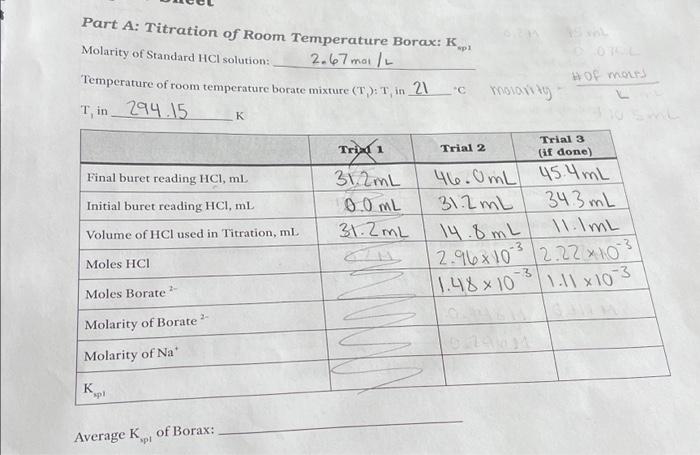 Part A: Titration of Room Temperature Borax: Ksp1
Molarity of Standard HCl solution: 2.67 mol/L
Temperature of room temperature borate mixture (T₁): T₁ in 21 °C
molarity = # of moles
L
T₁ in 294.15 K
Trial 1 Trial 2 Trial 3 (if done)
Final buret reading HCl, mL 31.2mL 46.0mL 45.4mL
Initial buret reading HCl, mL 0.0mL 31.2mL 34.3mL
Volume of HCl used in Titration, mL 31.2mL 14.8mL 11.1mL
Moles HCl 2.96x10⁻³ 2.22x10⁻³
Moles Borate²⁻ 1.48x10⁻³ 1.11x10⁻³
Molarity of Borate²⁻
Molarity of Na⁺
Ksp1
Average Ksp1 of Borax: